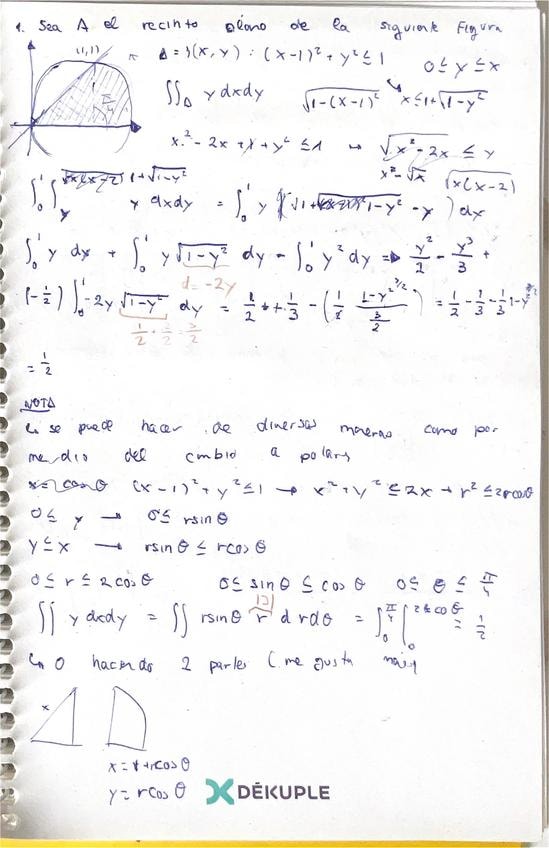 1. Sea A el recinto plano de la siguiente Figura
(1,1)
A = {(x, y) : (x-1)² + y² ≤ 1 0 ≤ y ≤ x
∬_A y dxdy √(1-(x-1)²) x ≤ 1+√(1-y²)
π/4
x² - 2x + 1 + y² ≤ 1 √(x²-2x) ≤ y
√(x(x-2))
∫₀¹ ∫_y^{1+√(1-y²)} y dxdy = ∫₀¹ y (1+√(1-y²) - y) dx
∫₀¹ y dx + ∫₀¹ y √(1-y²) dy - ∫₀¹ y² dy => y²/2 - y³/3 +
d = -2y
(-1/2) ∫₀¹ -2y √(1-y²) dy =
= 1/2
NOTA
se puede hacer de diversas maneras como por
medio del cmbio a polars
x = r cos θ (x-1)² + y² ≤ 1 → x² + y² ≤ 2x → r² ≤ 2r cos θ
0 ≤ y → 0 ≤ r sin θ
y ≤ x → r sin θ ≤ r cos θ
0 ≤ r ≤ 2 cos θ 0 ≤ sin θ ≤ cos θ 0 ≤ θ ≤ π/4
|J|
∬ y dxdy = ∬ r sin θ r d r dθ = ∫₀^{π/4} ∫₀^{2 cos θ} = 1/2
O haciendo 2 partes (me gusta más)
x
x = 1 + r cos θ
y = r cos θ
DĒKUPLE